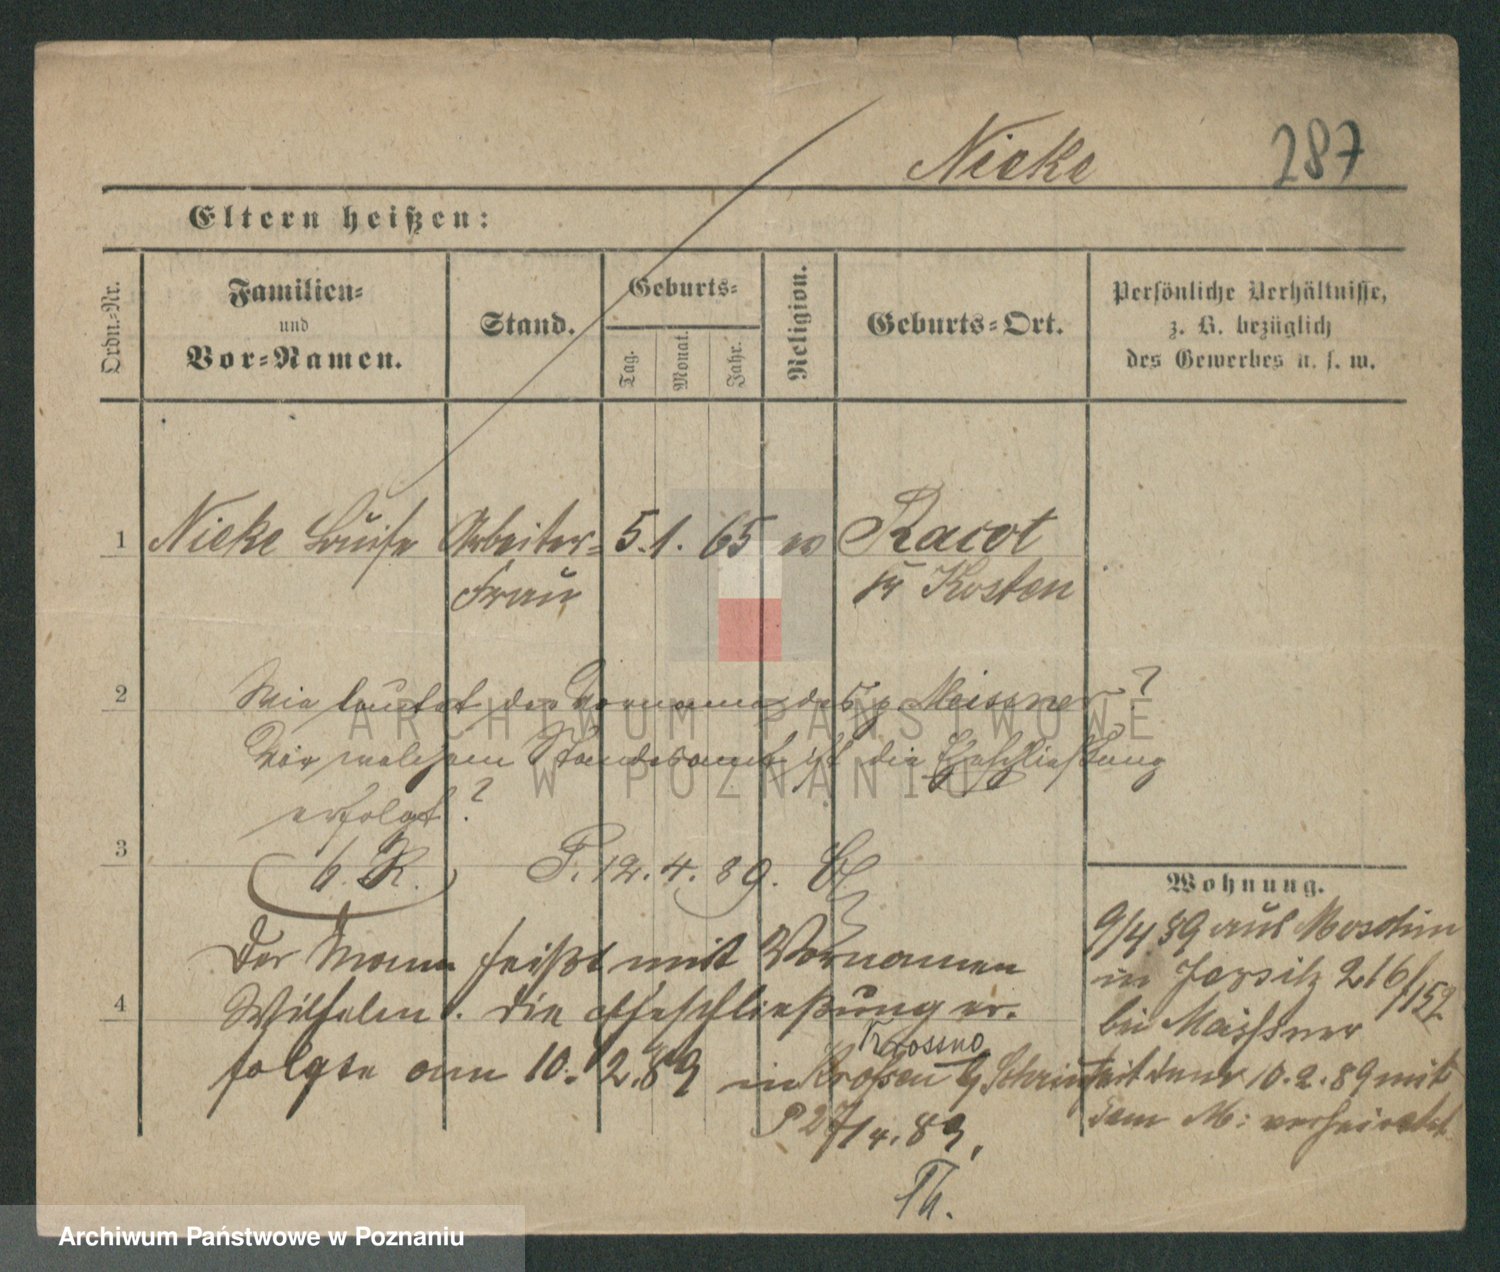 Nieke 287
Eltern heißen:
Ordn.-Nr.
Familien-
und
Vor-Namen.
Stand.
Geburts-
Tag.
Monat.
Jahr.
Religion.
Geburts-Ort.
Persönliche Verhältnisse,
z. B. bezüglich
des Gewerbes u. s. w.
1 Nieke Louise Arbeiter- 5. 1. 65 ev Racot
frau Kr Kosten
2 Wie lautet der Vorname des p. Meissner?
Vor welchem Standesamt ist die Eheschließung
erfolgt?
3
b. R. P. 12. 4. 89.
Der Mann heißt mit Vornamen
4 Wilhelm. Die Eheschließung er-
folgte am 10. 2. 89 in Kroßen b/ Schrim
Krossno
P 27/4. 89.
Th.
Wohnung.
9/4 89 aus Moschin
in Jersitz 216/157
bei Meissner
seit dem 10. 2. 89 mit
dem M: verheiratet
ARCHIWUM PAŃSTWOWE
W POZNANIU
Archiwum Państwowe w Poznaniu